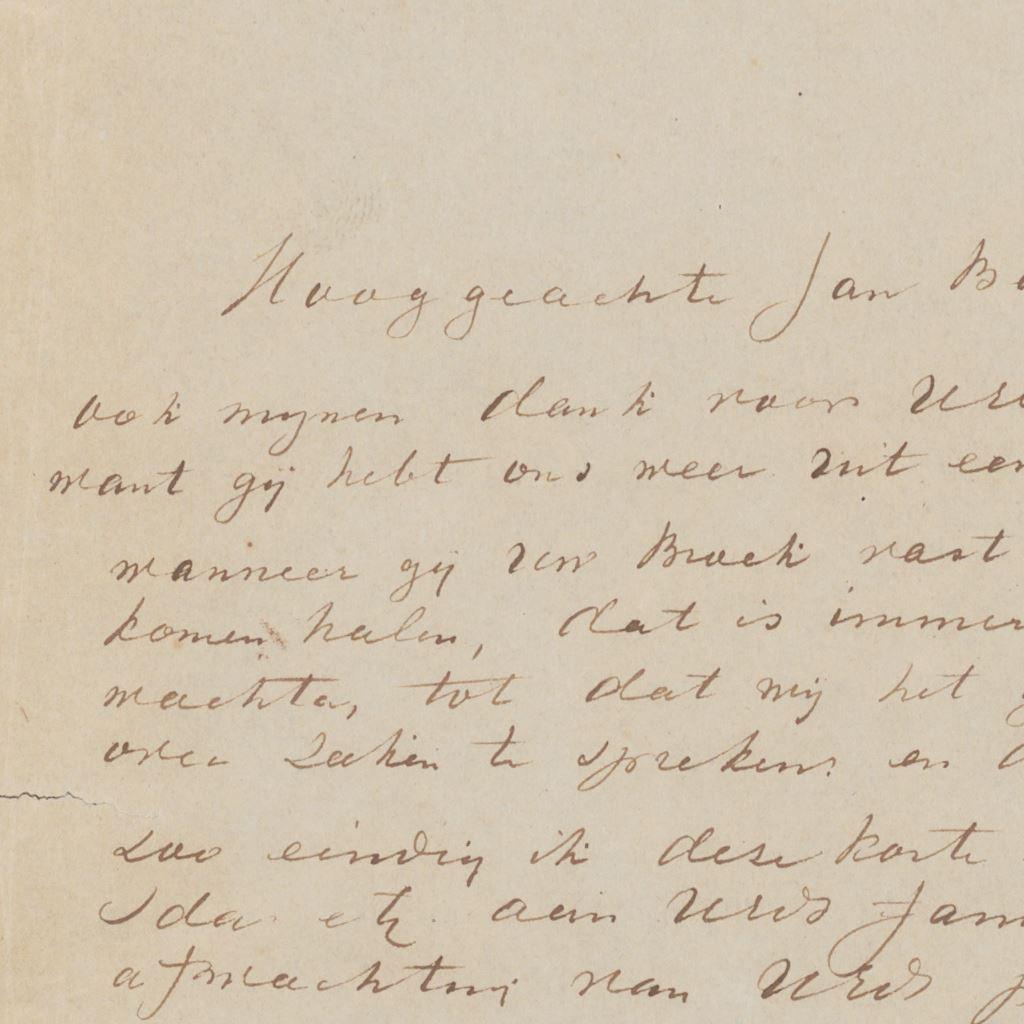 Hooggeachte Jan Bo
ook mynen dank voor UEd
want gij hebt ons weer uit een
wanneer gij uw Broek vast
komen halen, dat is immer
wachten, tot dat mij het g
over zaken te spreken: en
zoo eindig ik deze korte
Ida etz. aan UEds fam
afwachting van UEds